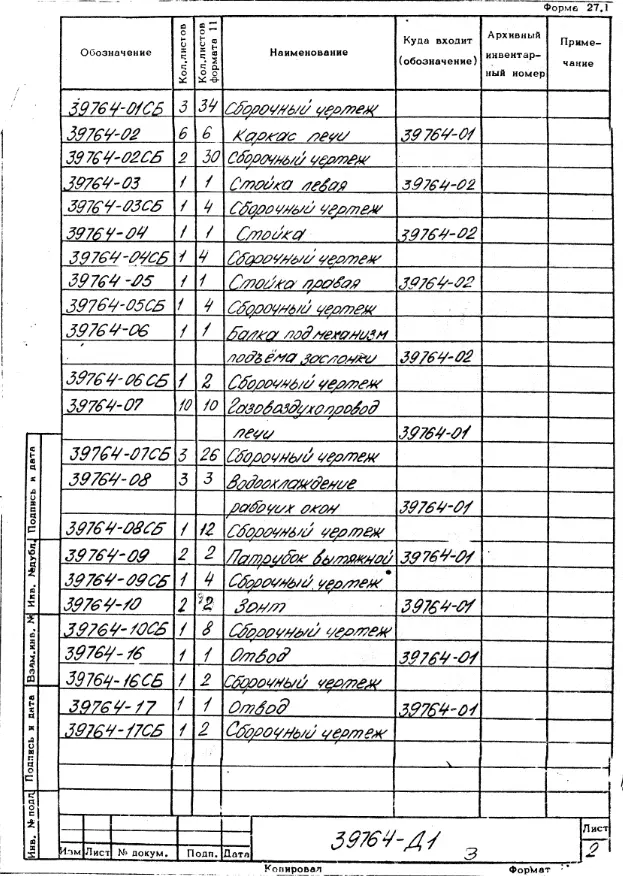 Форма 27.1
Обозначение Кол.листов Кол.листов формата 11 Наименование Куда входит (обозначение) Архивный инвентар-ный номер Приме-чание
39764-01СБ 3 34 Сборочный чертеж
39764-02 6 6 Каркас печи 39764-01
39764-02СБ 2 30 Сборочный чертеж
39764-03 1 1 Стойка левая 39764-02
39764-03СБ 1 4 Сборочный чертеж
39764-04 1 1 Стойка 39764-02
39764-04СБ 1 4 Сборочный чертеж
39764-05 1 1 Стойка правая 39764-02
39764-05СБ 1 4 Сборочный чертеж
39764-06 1 1 Балка под механизм
подъёма заслонки 39764-02
39764-06СБ 1 2 Сборочный чертеж
39764-07 10 10 Газовоздухопровод
печи 39764-01
39764-07СБ 3 26 Сборочный чертеж
39764-08 3 3 Водоохлаждение
рабочих окон 39764-01
39764-08СБ 1 12 Сборочный чертеж
39764-09 2 2 Патрубок вытяжной 39764-01
39764-09СБ 1 4 Сборочный чертеж
39764-10 2 2 Зонт 39764-01
39764-10СБ 1 8 Сборочный чертеж
39764-16 1 1 Отвод 39764-01
39764-16СБ 1 2 Сборочный чертеж
39764-17 1 1 Отвод 39764-01
39764-17СБ 1 2 Сборочный чертеж
Подпись и дата
Инв. №дубл.
Взам.инв. №
Подпись и дата
Инв. № подл
39764-Д1
3
Лист
2
Изм Лист № докум. Подп. Дата
Копировал Формат